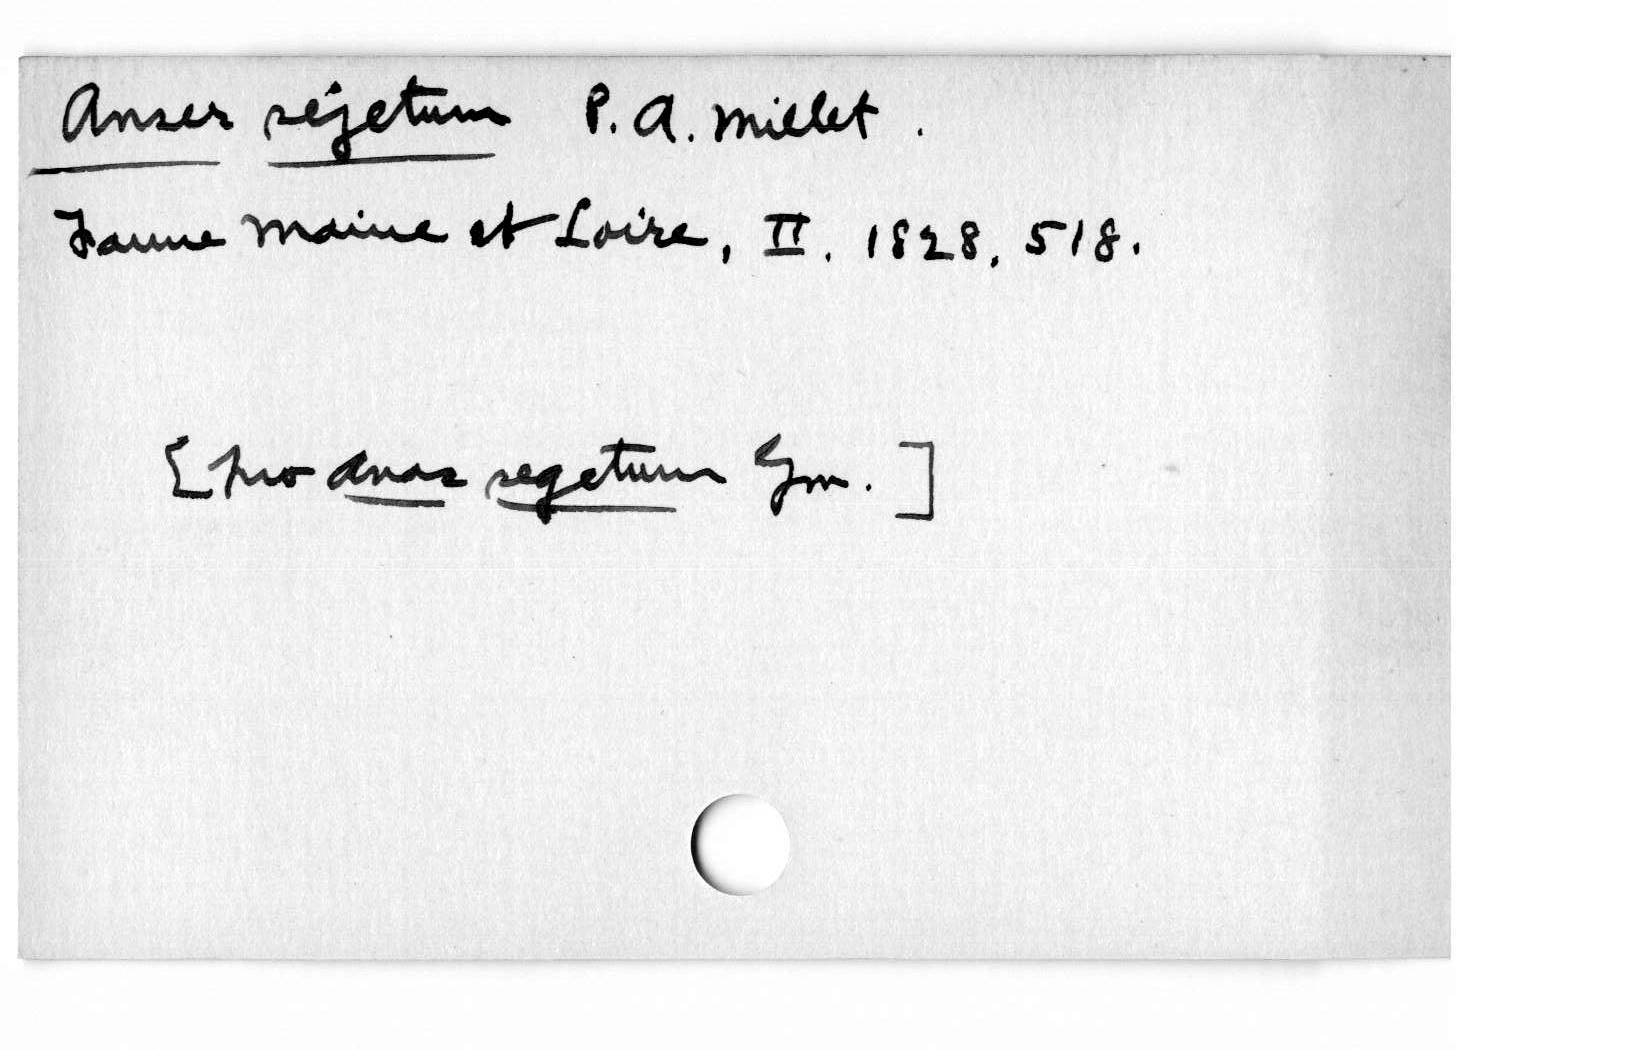 Anser sejetum P. A. Millet.
Faune Maine et Loire, II. 1828. 518.
[pro Anas segetum Gm.]